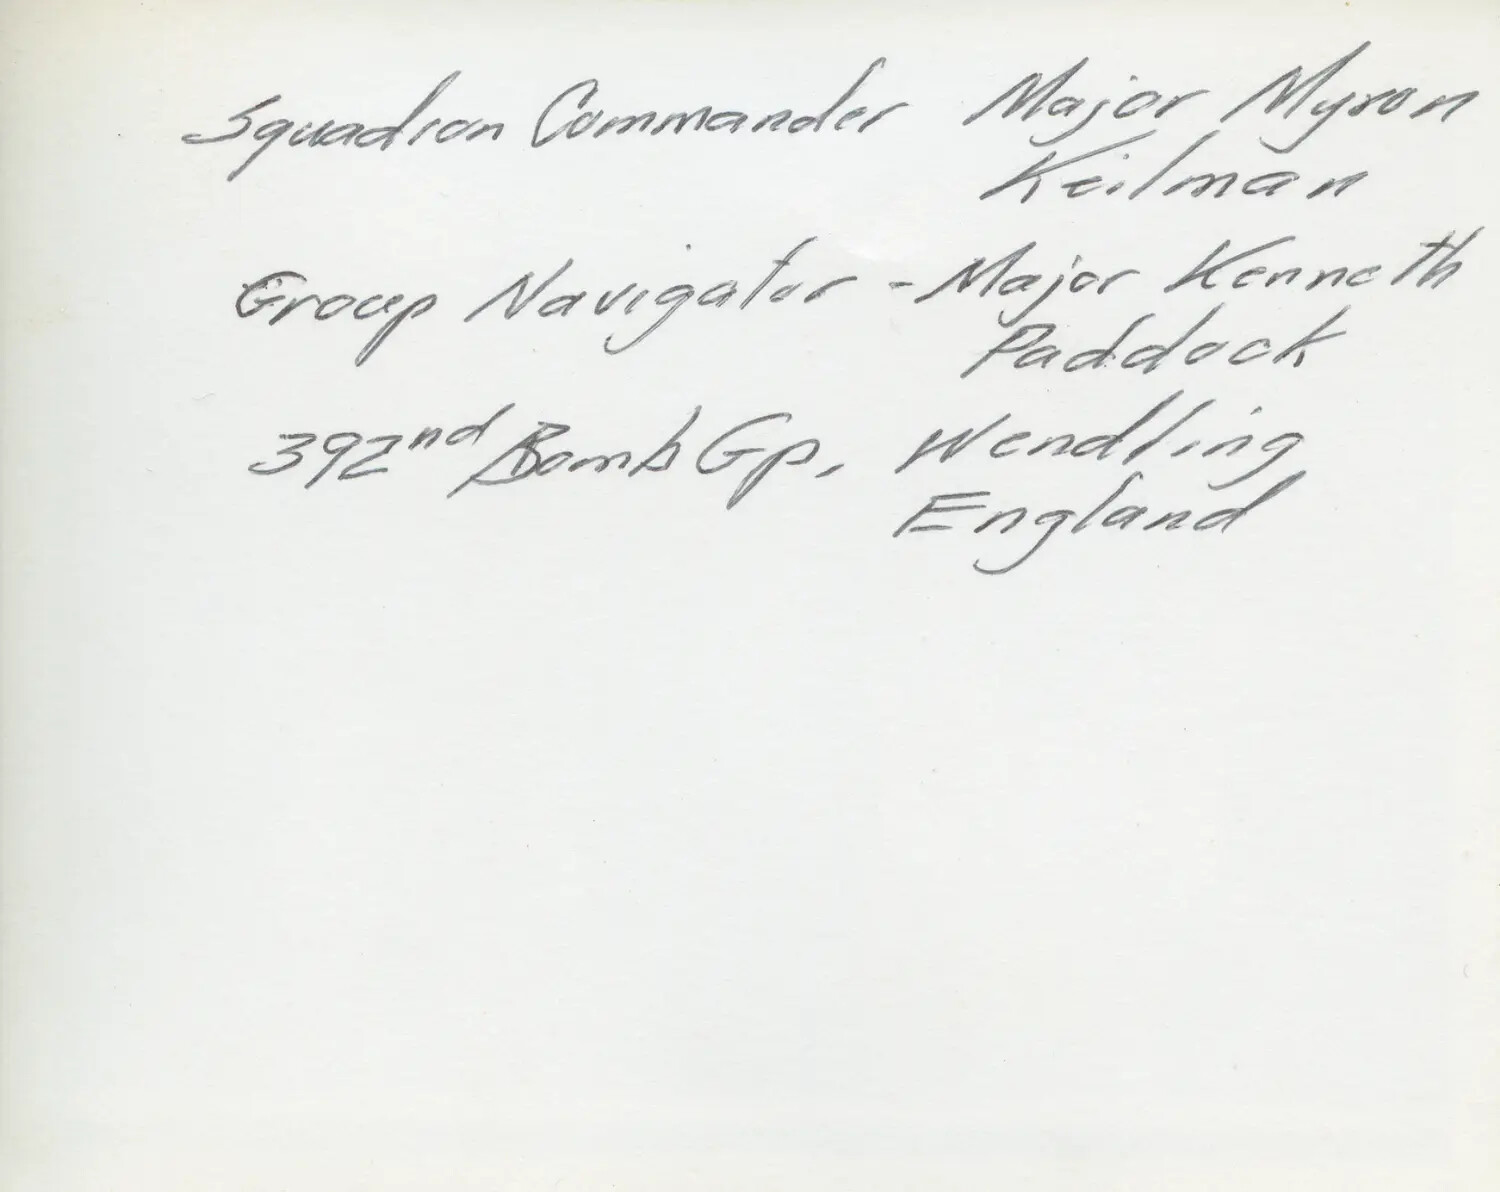 Squadron Commander Major Myron
Keilman
Group Navigator - Major Kenneth
Paddock
392nd Bomb Gp, Wendling
England